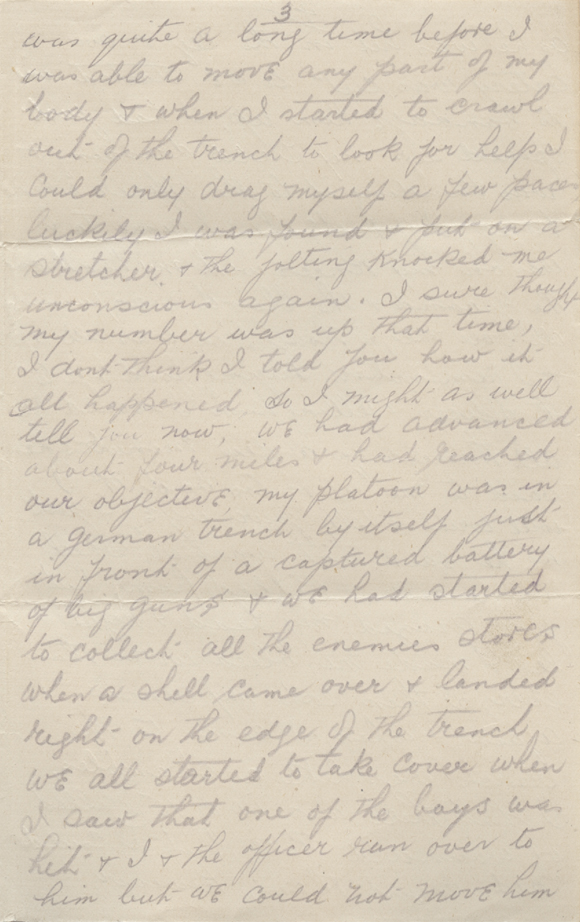 3
was quite a long time before I
was able to move any part of my
body & when I started to crawl
out of the trench to look for help I
could only drag myself a few paces
luckily I was found & put on a
stretcher & the jolting knocked me
unconscious again. I sure though
my number was up that time,
I dont think I told you how it
all happened so I might as well
tell you now, we had advanced
about four miles & had reached
our objective, my platoon was in
a german trench by itself just
in front of a captured battery
of big guns & we had started
to collect all the enemies stores
when a shell came over & landed
right on the edge of the trench
we all started to take cover when
I saw that one of the boys was
hit & I & the officer ran over to
him but we could not move him